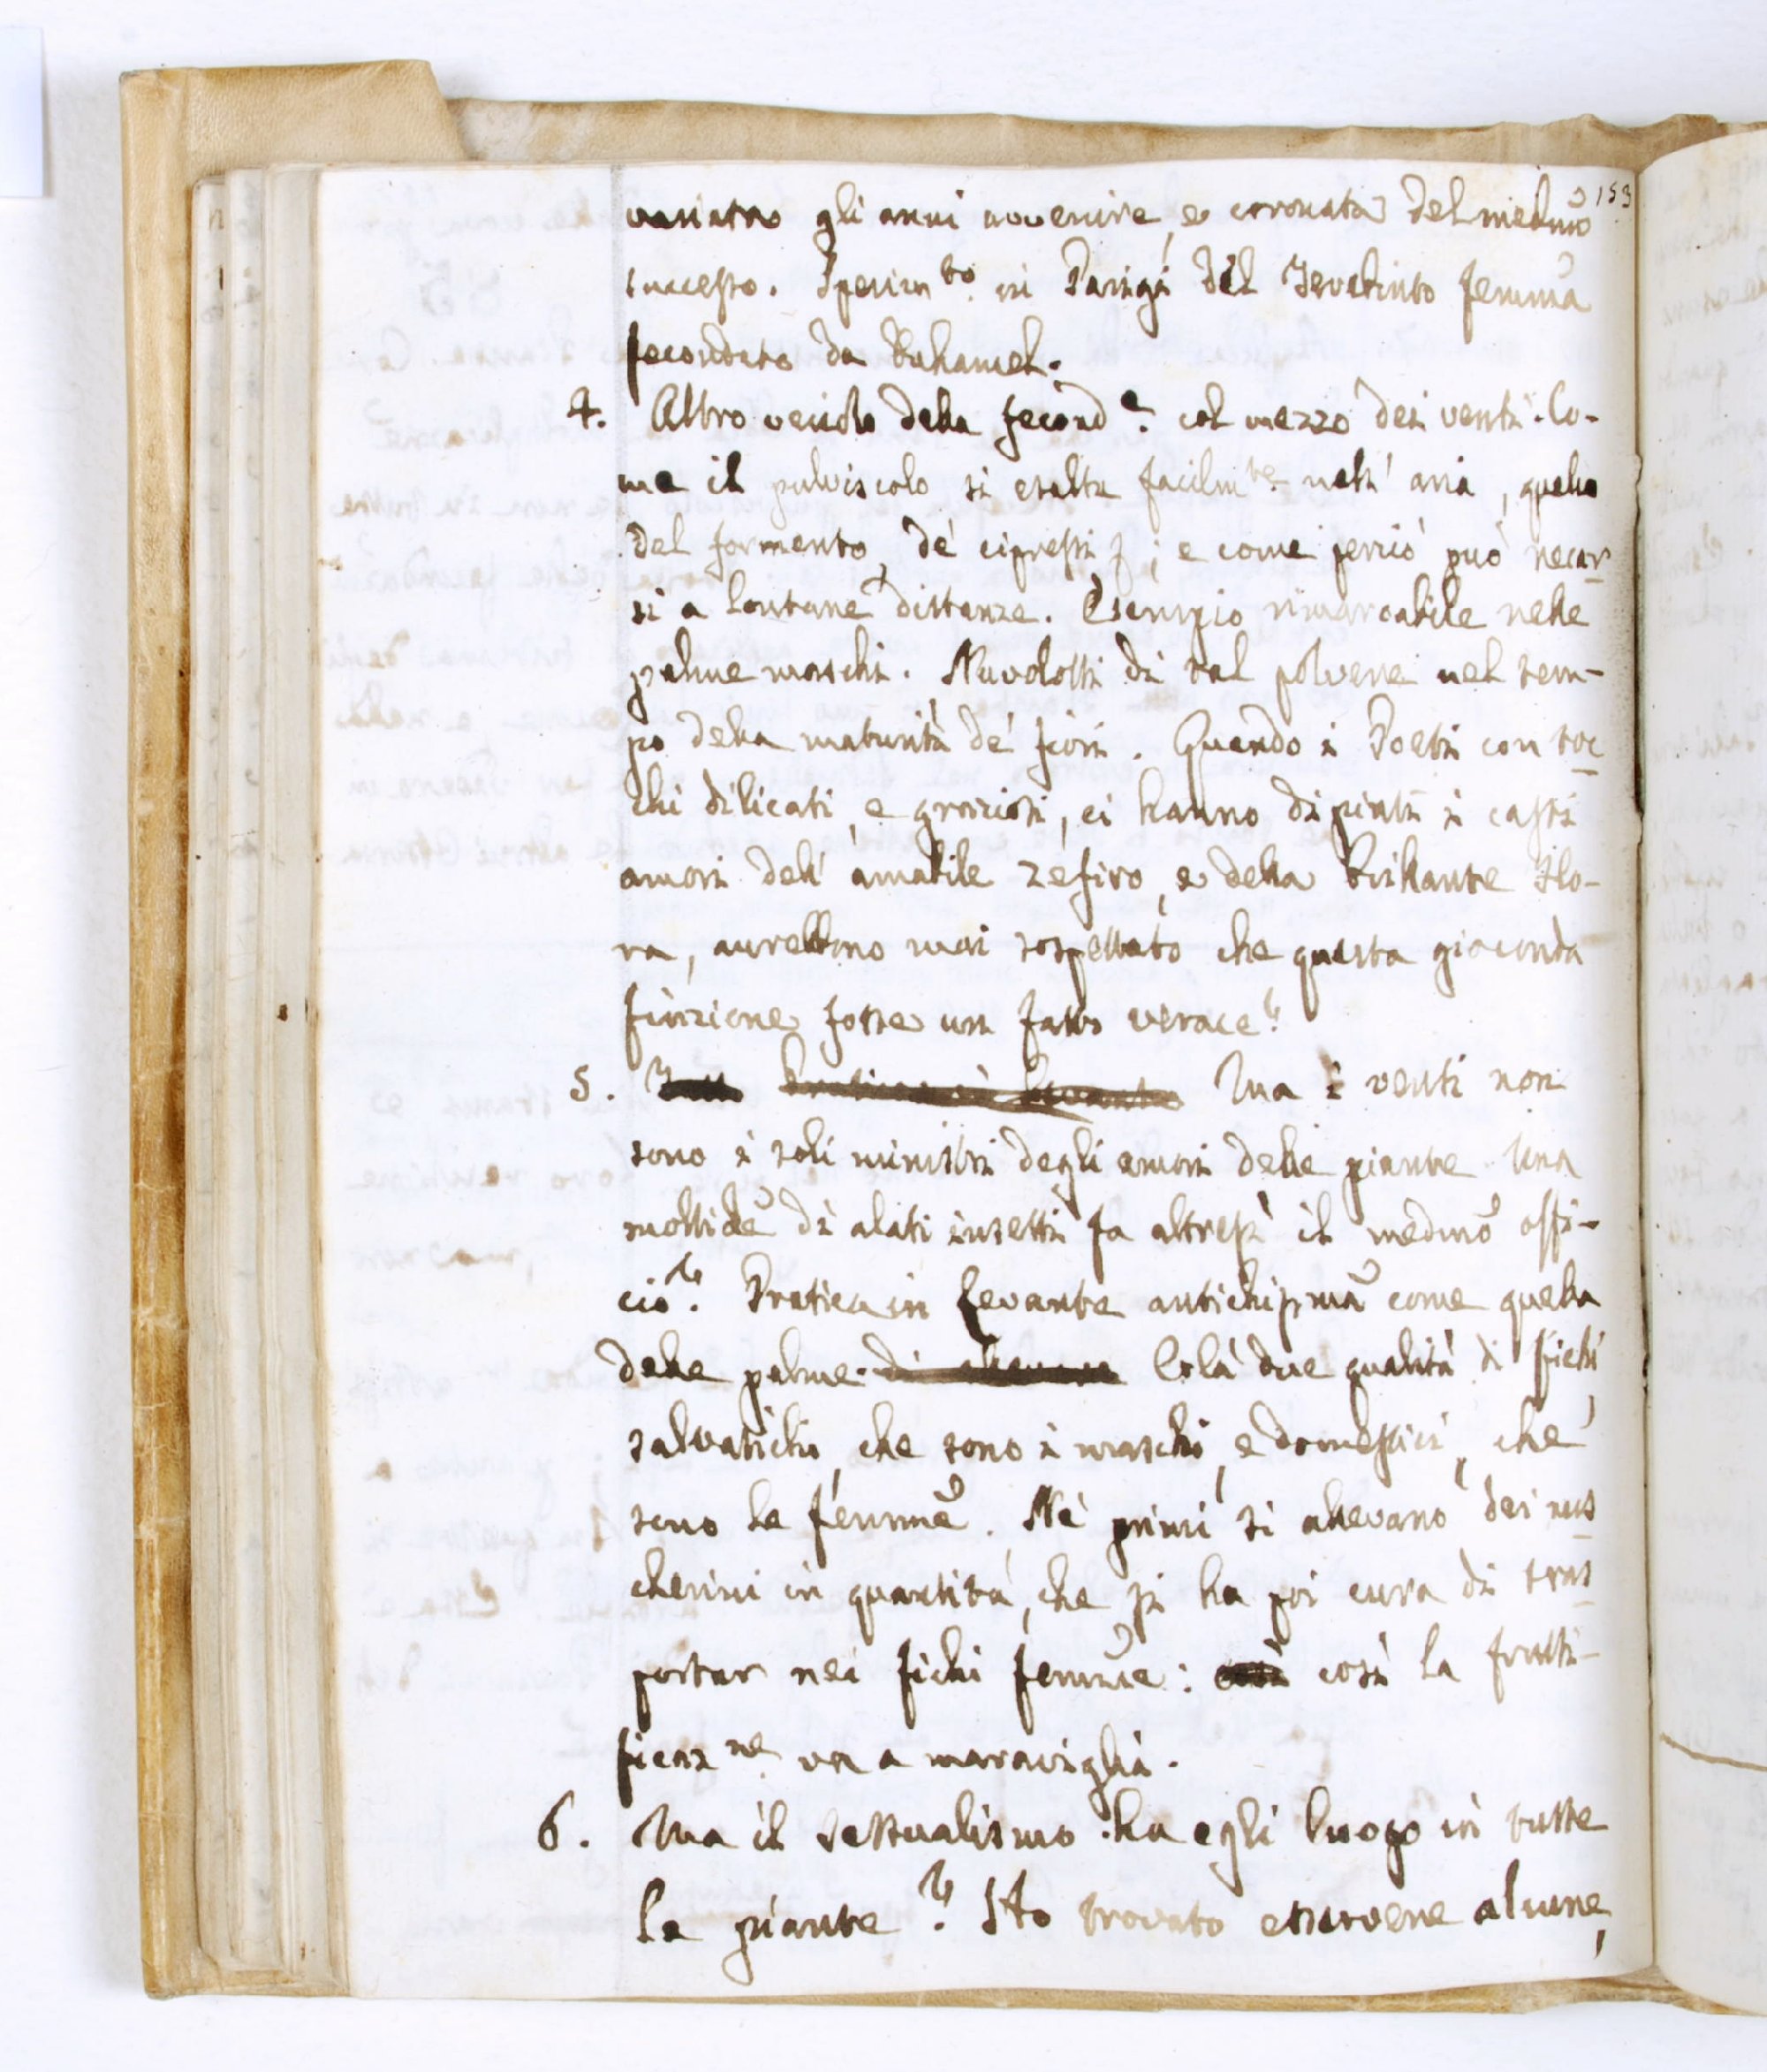 153
variata gli anni avvenire, e coronata del medmo
successo. Sperimto. in Parigi del Terebinto femma
fecondato da Duhamel.
4. Altro veicolo della feconde. col mezzo dei venti. Co-
me il pulviscolo si esalta facilmte. nell' aria, quello
del formento de' cipressi e come perciò può recar
si a lontane distanze. Esempio rimarcabile nelle
palme maschi. Nuvoletti di tal polvere nel tem-
po della maturità de' fiori. Quando i Poeti con toc
chi dilicati, e graziosi, ci hanno dipinti i casti
amori dell' amabile Zefiro, e della brillante Flo-
ra, avrebbono mai sospettato che questa gioconda
finzione fosse un fatto verace?
5. Ma i venti non
sono i soli ministri degli amori delle piante. Una
moltidne di alati insetti fa altresì il medmo offi-
cio. Pratica in Levante antichissma come quella
delle palme. Colà due qualità di fichi,
salvatichi, che sono i maschi, e domestici, che
sono le femmne. Ne' primi si allevano dei mos
cherini in quantità, che si ha poi cura di tras
portar nei fichi femmine: così la frutti-
ficazne. va a maraviglia.
6. Ma il sessualismo ha egli luogo in tutte
le piante? Ho trovato esservene alcune,